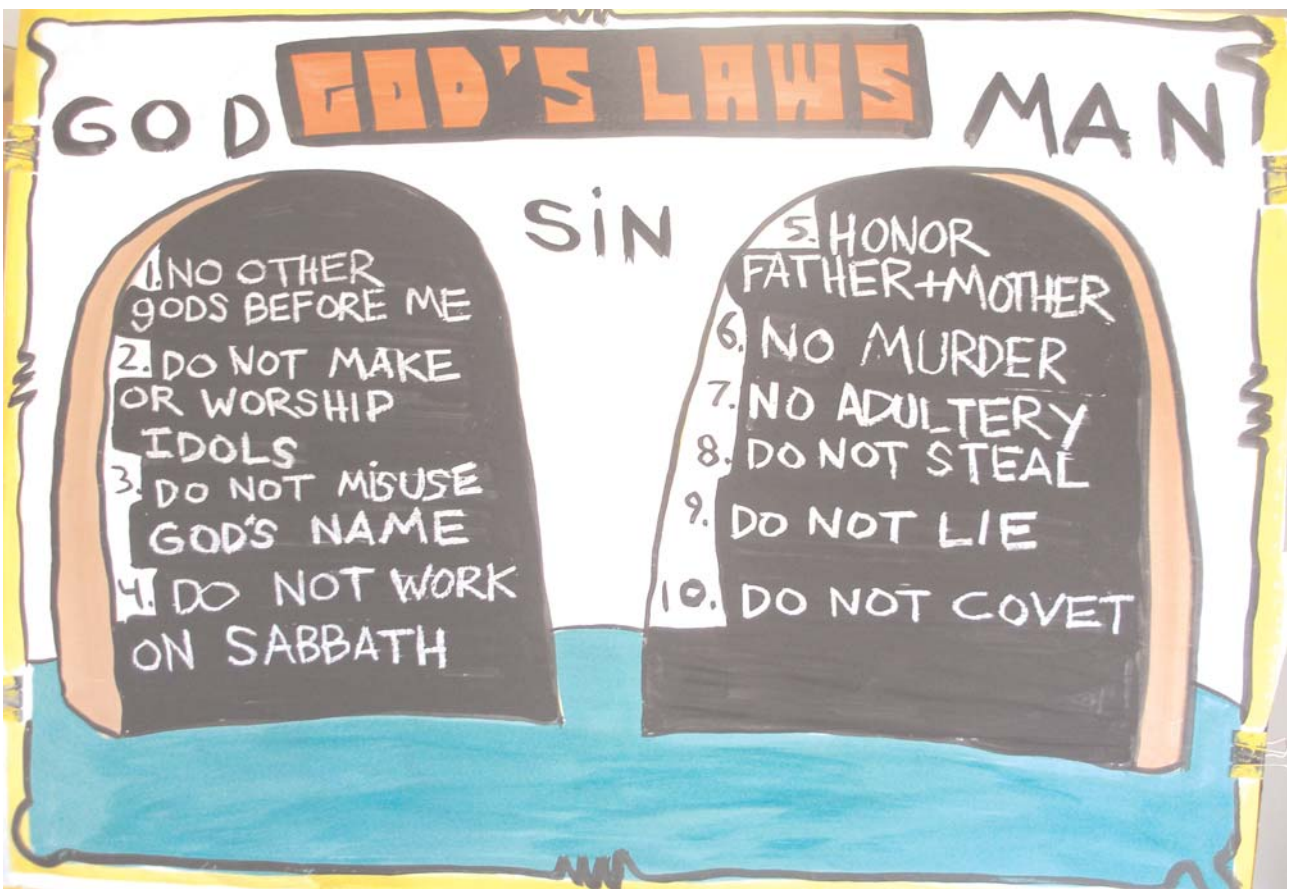 GOD GOD'S LAWS MAN
SiN
1. NO OTHER
gODS BEFORE ME
2. DO NOT MAKE
OR WORSHIP
IDOLS
3. DO NOT MiSUSE
GOD'S NAME
4. DO NOT WORK
ON SABBATH
5. HONOR
FATHER+MOTHER
6. NO MURDER
7. NO ADULTERY
8. DO NOT STEAL
9. DO NOT LIE
10. DO NOT COVET